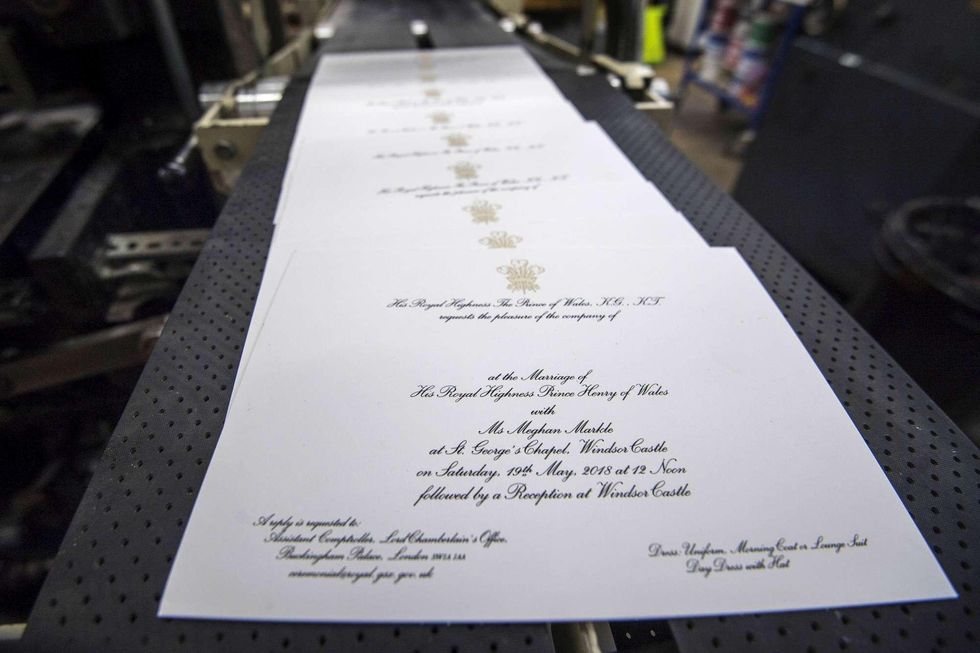 His Royal Highness The Prince of Wales, K.G., K.T.
requests the pleasure of the company of
His Royal Highness The Prince of Wales, K.G., K.T.
requests the pleasure of the company of
at the Marriage of
His Royal Highness Prince Henry of Wales
with
Ms Meghan Markle
at St. George's Chapel, Windsor Castle
on Saturday, 19th May, 2018 at 12 Noon
followed by a Reception at Windsor Castle
A reply is requested to:
Assistant Comptroller, Lord Chamberlain's Office,
Buckingham Palace, London SW1A 1AA
ceremonial@royal.gsx.gov.uk
Dress: Uniform, Morning Coat or Lounge Suit
Day Dress with Hat